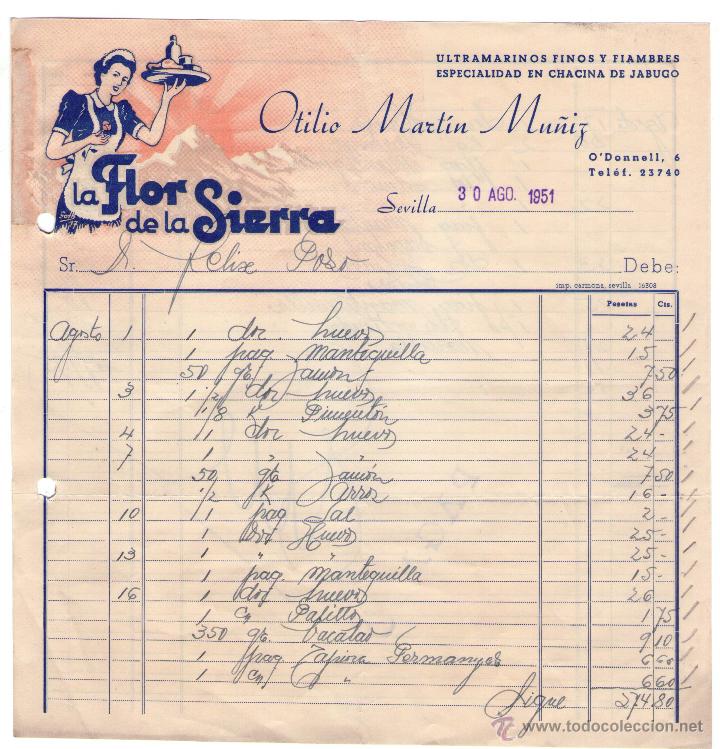 ULTRAMARINOS FINOS Y FIAMBRES
ESPECIALIDAD EN CHACINA DE JABUGO
Otilio Martín Muñiz
O'Donnell, 6
Teléf. 23740
La Flor
de la Sierra
Sevilla 30 AGO. 1951
Sr. D. Felix Poso Debe:
imp. carmona, sevilla 16308
Pesetas Cts.
Agosto 1 1 doc. huevos 24
1 paq. Mantequilla 15
50 gts Jamón 7 50
3 1 1/2 doc huevos 36
1/8 K Pimentón 3 75
4 1 doc huevos 24 -
7 1 " " 24
50 gts Jamón 7 50
1/2 K Arroz 16 -
10 1 paq Sal 2 -
1 doc Huevos 25 -
13 1 " " 25 -
1 paq. Mantequilla 15 -
16 1 doc huevos 26
1 Palitto 1 75
350 gts. bacalao 9 10
1 paq Tapioca Permanyer 6 60
1 " 6 60
Sigue 274 80
www.todocoleccion.net